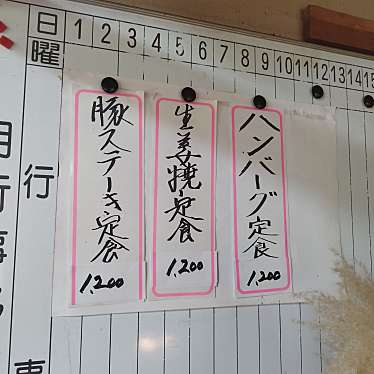 日
曜
1 2 3 4 5 6 7 8 9 10 11 12 13 14 15
行
ハンバーグ定食
1,200
生姜焼定食
1,200
豚ステーキ定食
1,200
月行事